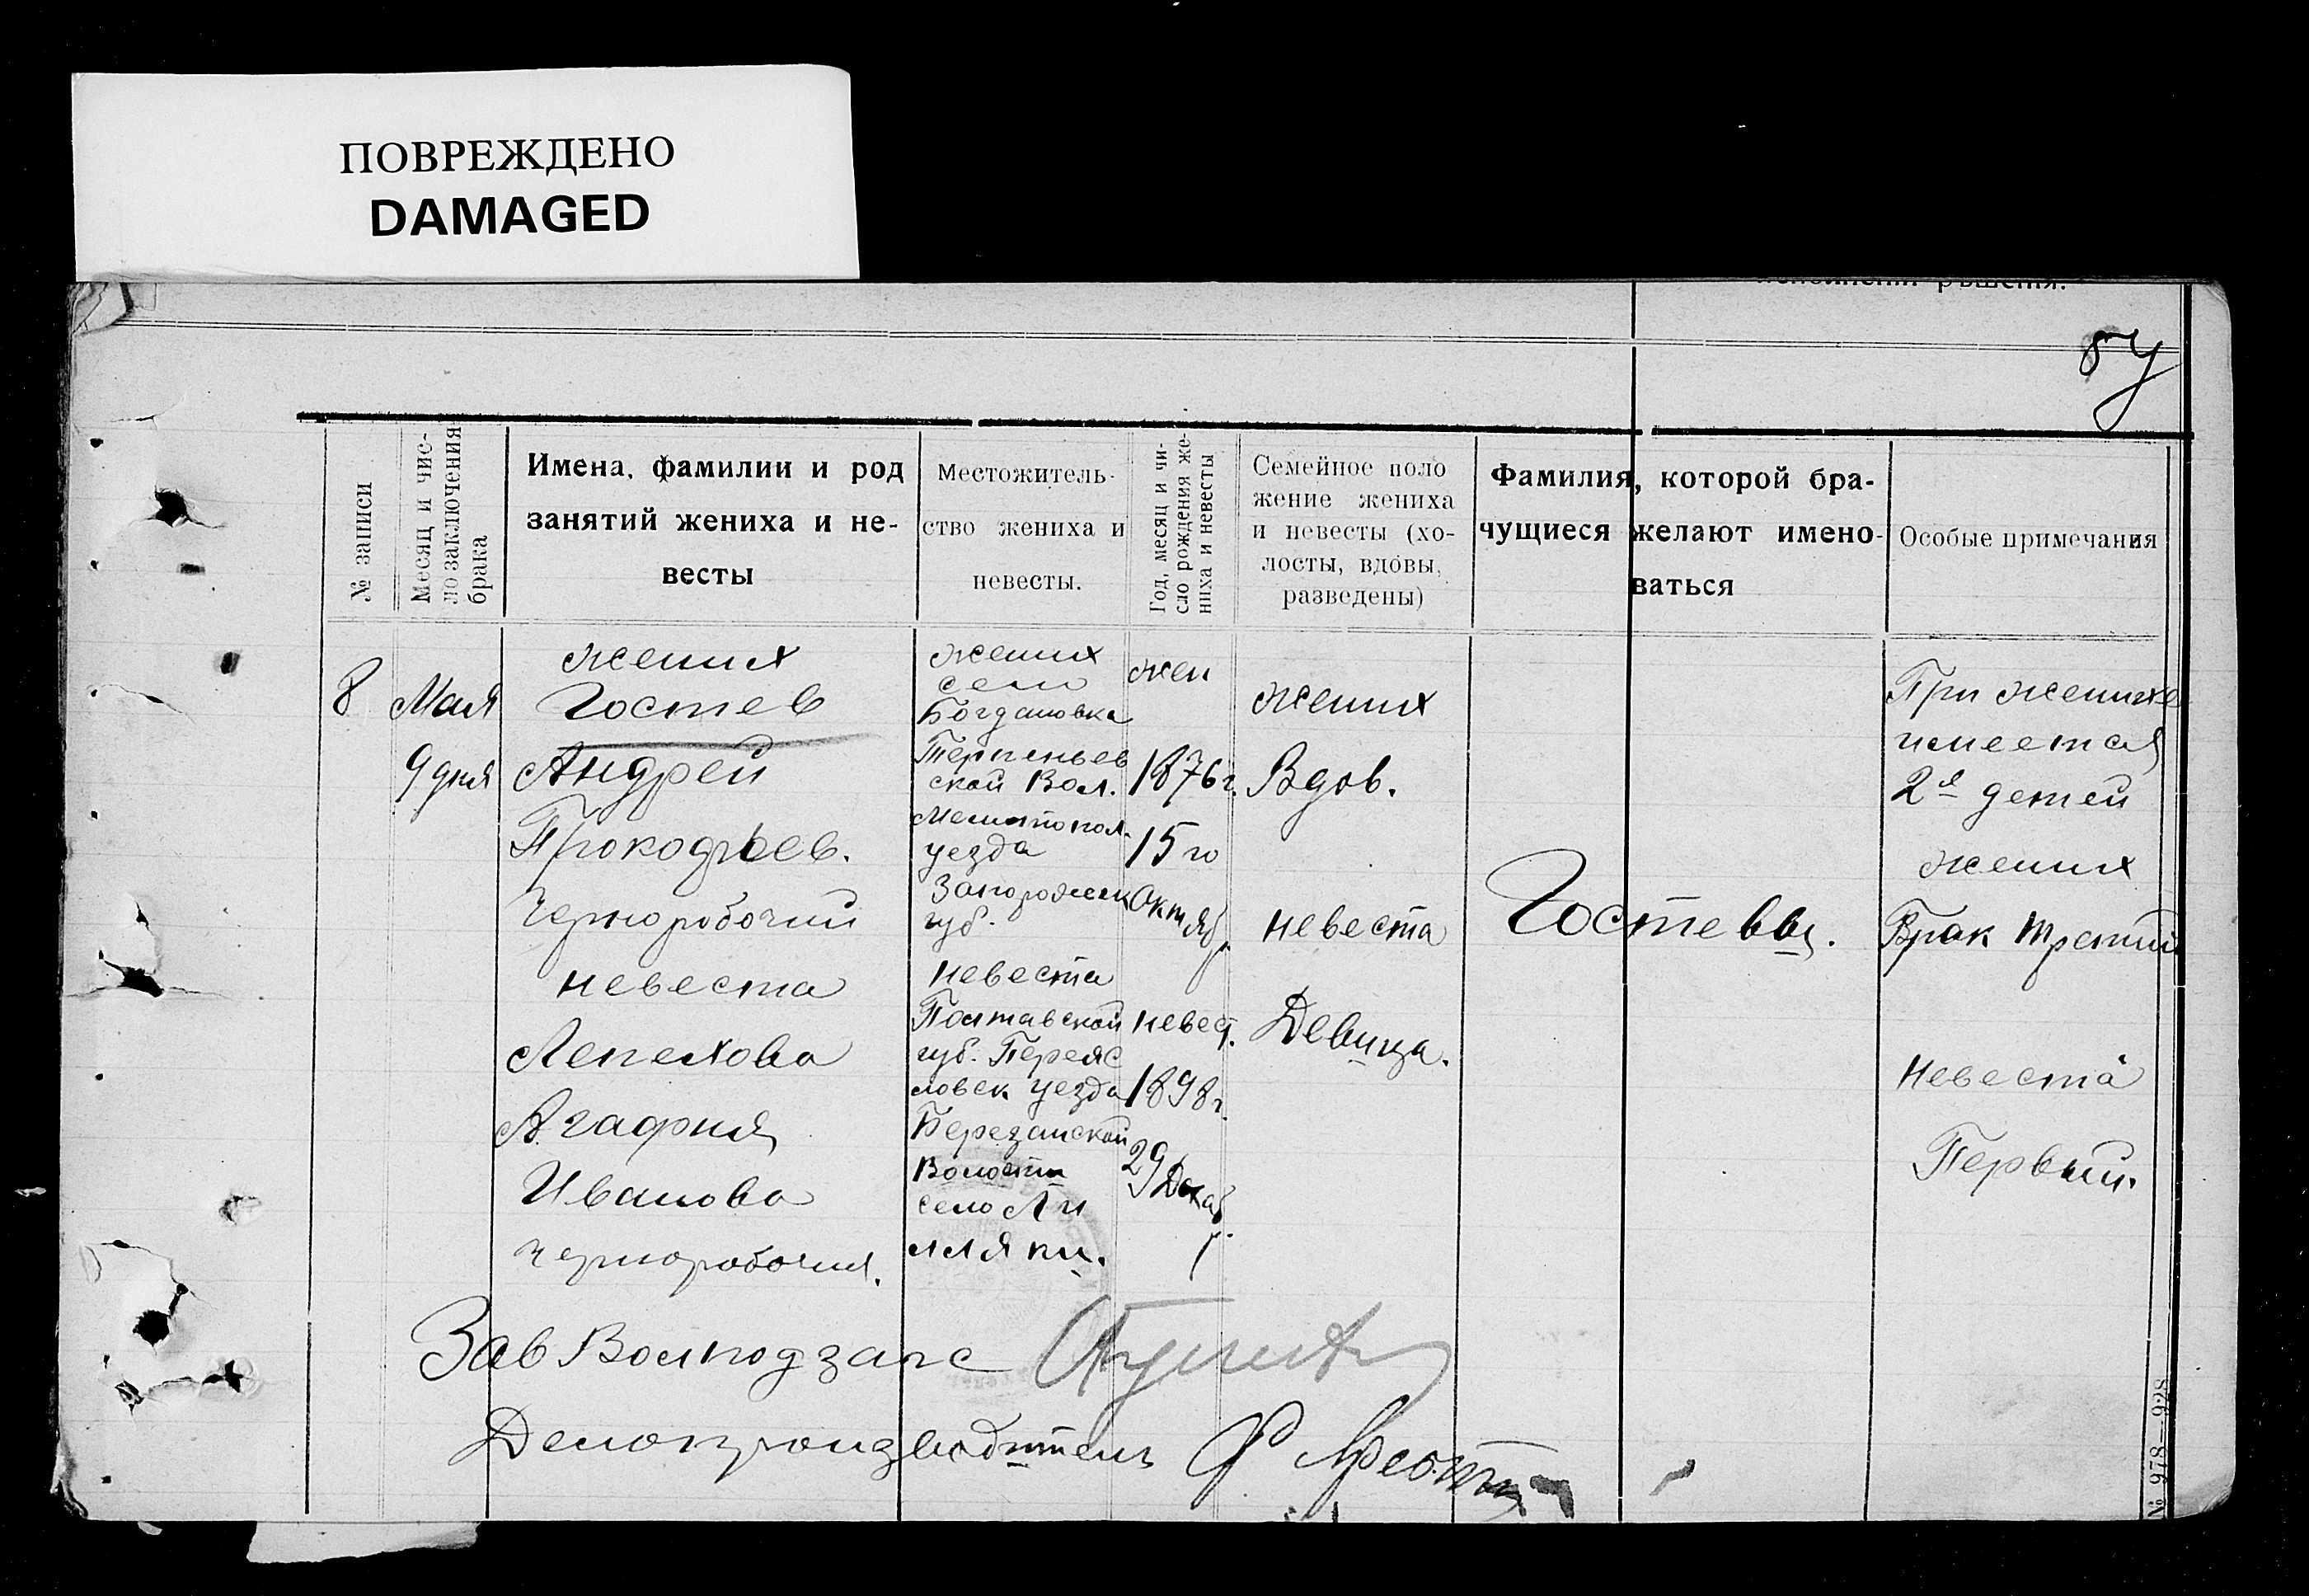 ПОВРЕЖДЕНО
DAMAGED
№ записи
Месяц и чис-
ло заключения
брака
Имена, фамилии и род
занятий жениха и не-
весты
Местожитель-
ство жениха и
невесты.
Год, месяц и чи-
сло рождения же-
ниха и невесты
Семейное поло
жение жениха
и невесты (хо-
лосты, вдовы,
разведены)
Фамилия, которой бра-
чущиеся желают имено-
ваться
Особые примечания
8
Мая
9 дня
жених
Гостев
Андрей
Прокофьев.
Чернорабочий
невеста
Лепехова
Агафия
Иванова
чернорабочая.
жених
село
Богдановка
Терпеньев
ской Вол.
Мелитопол.
уезда
Запорожск
губ.
невеста
Полтавской
губ. Переяс
ловск уезда
Березанской
Волости
село Ли
лляки.
жен
1876 г.
15 го
Октяб
р.
невест.
1898 г.
29 Декаб
р.
жених
Вдов.
невеста
Девица.
Гостевы.
При женихе
имеется
2е детей
жених
Брак третий
невеста
Первый.
Зав Волподзагс
Делопроизводитель
№ 978—928